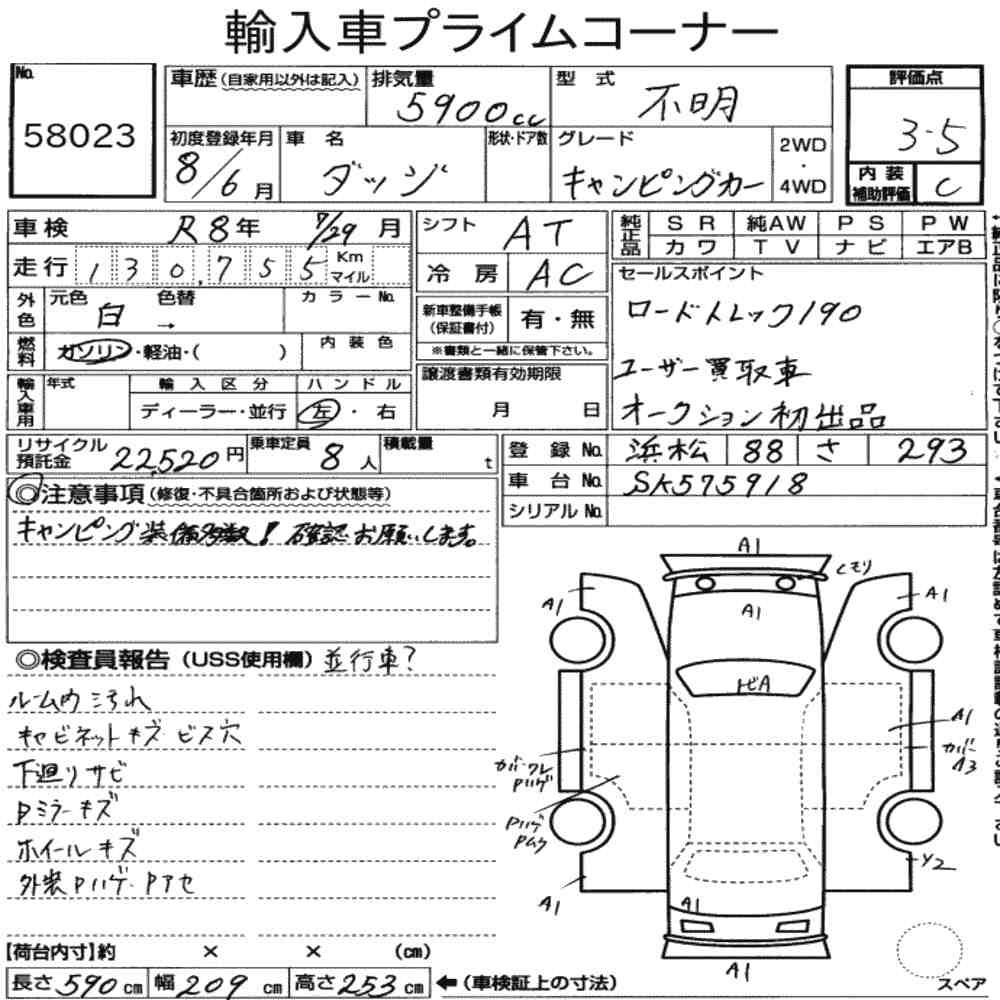 輸入車プライムコーナー
No.
58023
車歴(自家用以外は記入)
排気量
5900cc
型 式
不明
評価点
3.5
初度登録年月
8/6月
車 名
ダッジ
形状・ドア数
グレード
キャンピングカー
2WD
・
4WD
内 装
補助評価
C
車検 R8年 7/29月
走行 130,755 Km マイル
外色 元色 白 色替 → カラーNo.
燃料 ガソリン・軽油・( ) 内装色
輸入車用 年式 輸入区分 ハンドル
ディーラー・並行 左・右
シフト AT
冷房 AC
新車整備手帳
(保証書付) 有・無
※書類と一緒に保管下さい。
譲渡書類有効期限
月 日
純正品 SR 純AW PS PW
カワ TV ナビ エアB
セールスポイント
ロードトレック190
ユーザー買取車
オークション初出品
リサイクル
預託金 22,520円
乗車定員 8人
積載量 t
登録No. 浜松 88 さ 293
車台No. SK575918
シリアルNo.
◎注意事項(修復・不具合箇所および状態等)
キャンピング装備多数! 確認お願いします。
◎検査員報告(USS使用欄) 並行車?
ルーム内 汚れ
キャビネットキズ ビス穴
下廻りサビ
Pミラーキズ
ホイールキズ
外装Pハゲ・Pアセ
A1
ヒモリ
A1
A1
A1
トビA
A1
カバーワレ
Pハゲ
カバー
A3
Pハゲ
Pムラ
Y2
A1
A1
A1
スペア
【荷台内寸】約 × × (cm)
長さ590cm 幅209cm 高さ253cm ←(車検証上の寸法)